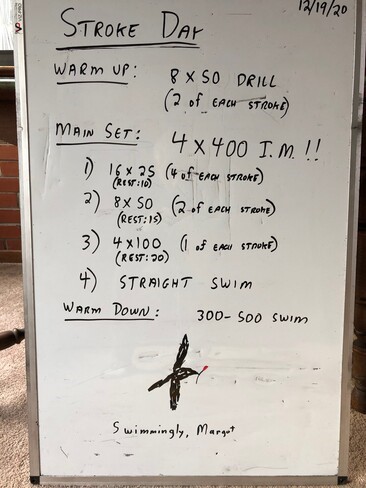 12/19/20
STROKE DAY
WARM UP: 8 X 50 DRILL
(2 of EACH STROKE)
MAIN SET: 4 X 400 I.M. !!
1) 16 X 25 (4 of EACH STROKE)
(REST:10)
2) 8 X 50 (2 of EACH STROKE)
(REST:15)
3) 4 X 100 (1 of EACH STROKE)
(REST:20)
4) STRAIGHT SWIM
WARM DOWN: 300-500 SWIM
Swimmingly, Margot